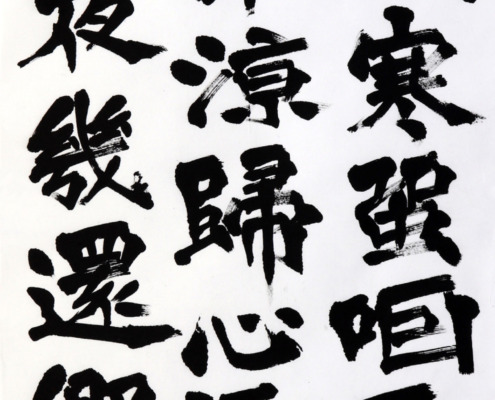 寒蛩咽
涼歸心
夜幾還鄉